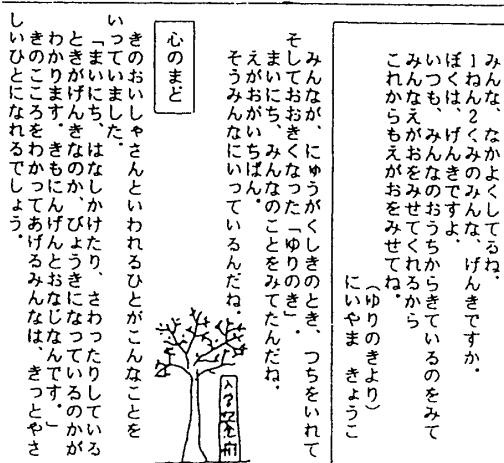 みんな、なかよくしてるね。
1ねん2くみのみんな、げんきですか。
ぼくは、げんきですよ、
いつも、みんなのおうちからきているのをみて
みんなえがおをみせてくれるから
これからもえがおをみせてね。
(ゆりのきより)
にいやま きょうこ
みんなが、にゅうがくしきのとき、つちをいれて
そしておおきくなった「ゆりのき」。
まいにち、みんなのことをみてたんだね。
えがおがいちばん。
そうみんなにいっているんだね。
心のまど
きのおいしゃさんといわれるひとがこんなことを
いっていました。
「まいにち、はなしかけたり、さわったりしている
ときがげんきなのか、びょうきになっているのかが
わかります。きもにんげんとおなじなんです。」
きのこころをわかってあげるみんなは、きっとやさ
しいひとになれるでしょう。